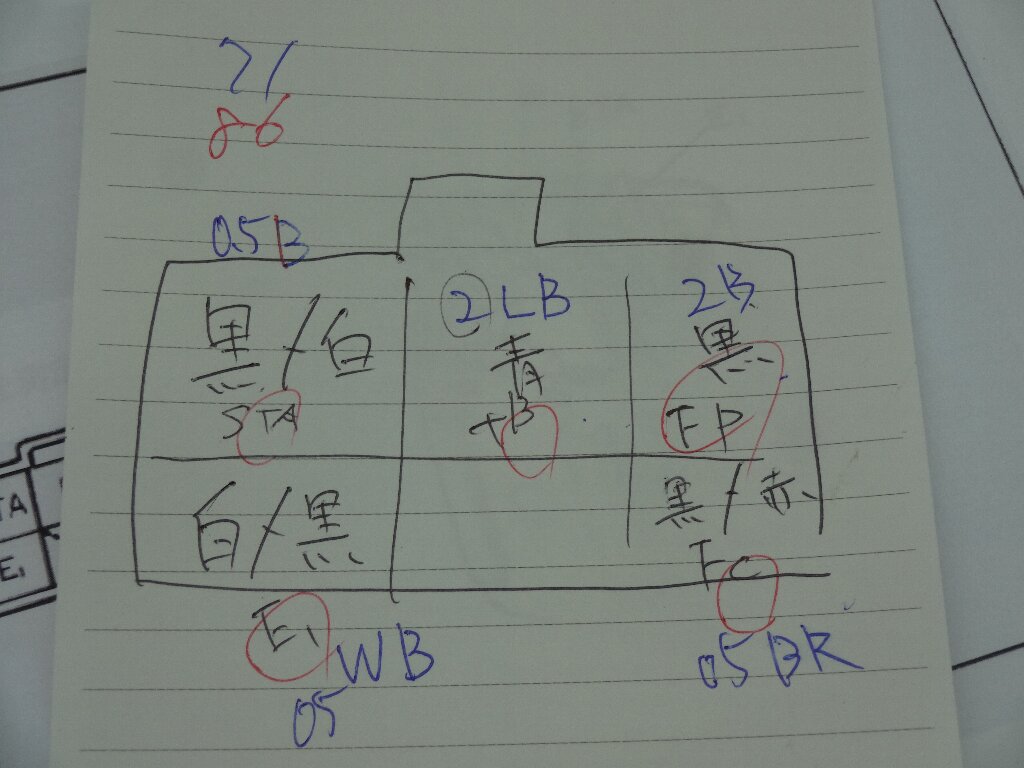 71
86
05B
黒/白
STA
2LB
青
+B
2B
黒
FP
白/黒
黒/赤
E1
FC
WB
05
05BR
TA
E1